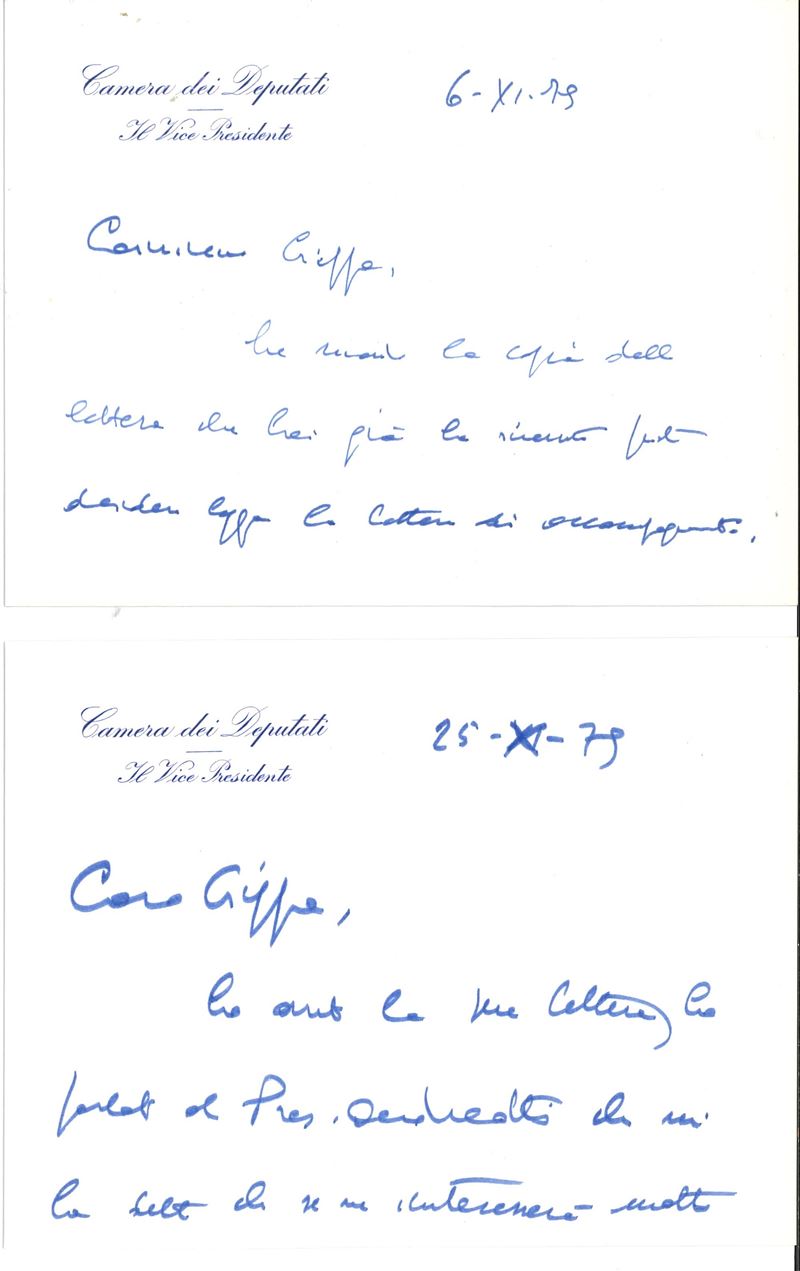 Camera dei Deputati
Il Vice Presidente
6-XI-79
Carissimo
la copia della
lettera che hai già
leggere la lettera di accompagnamento.
Camera dei Deputati
Il Vice Presidente
25-XI-79
Caro
ho avuto la tua lettera, ho
parlato al Pres. Andreotti che mi
ha detto che se ne interesserà molto